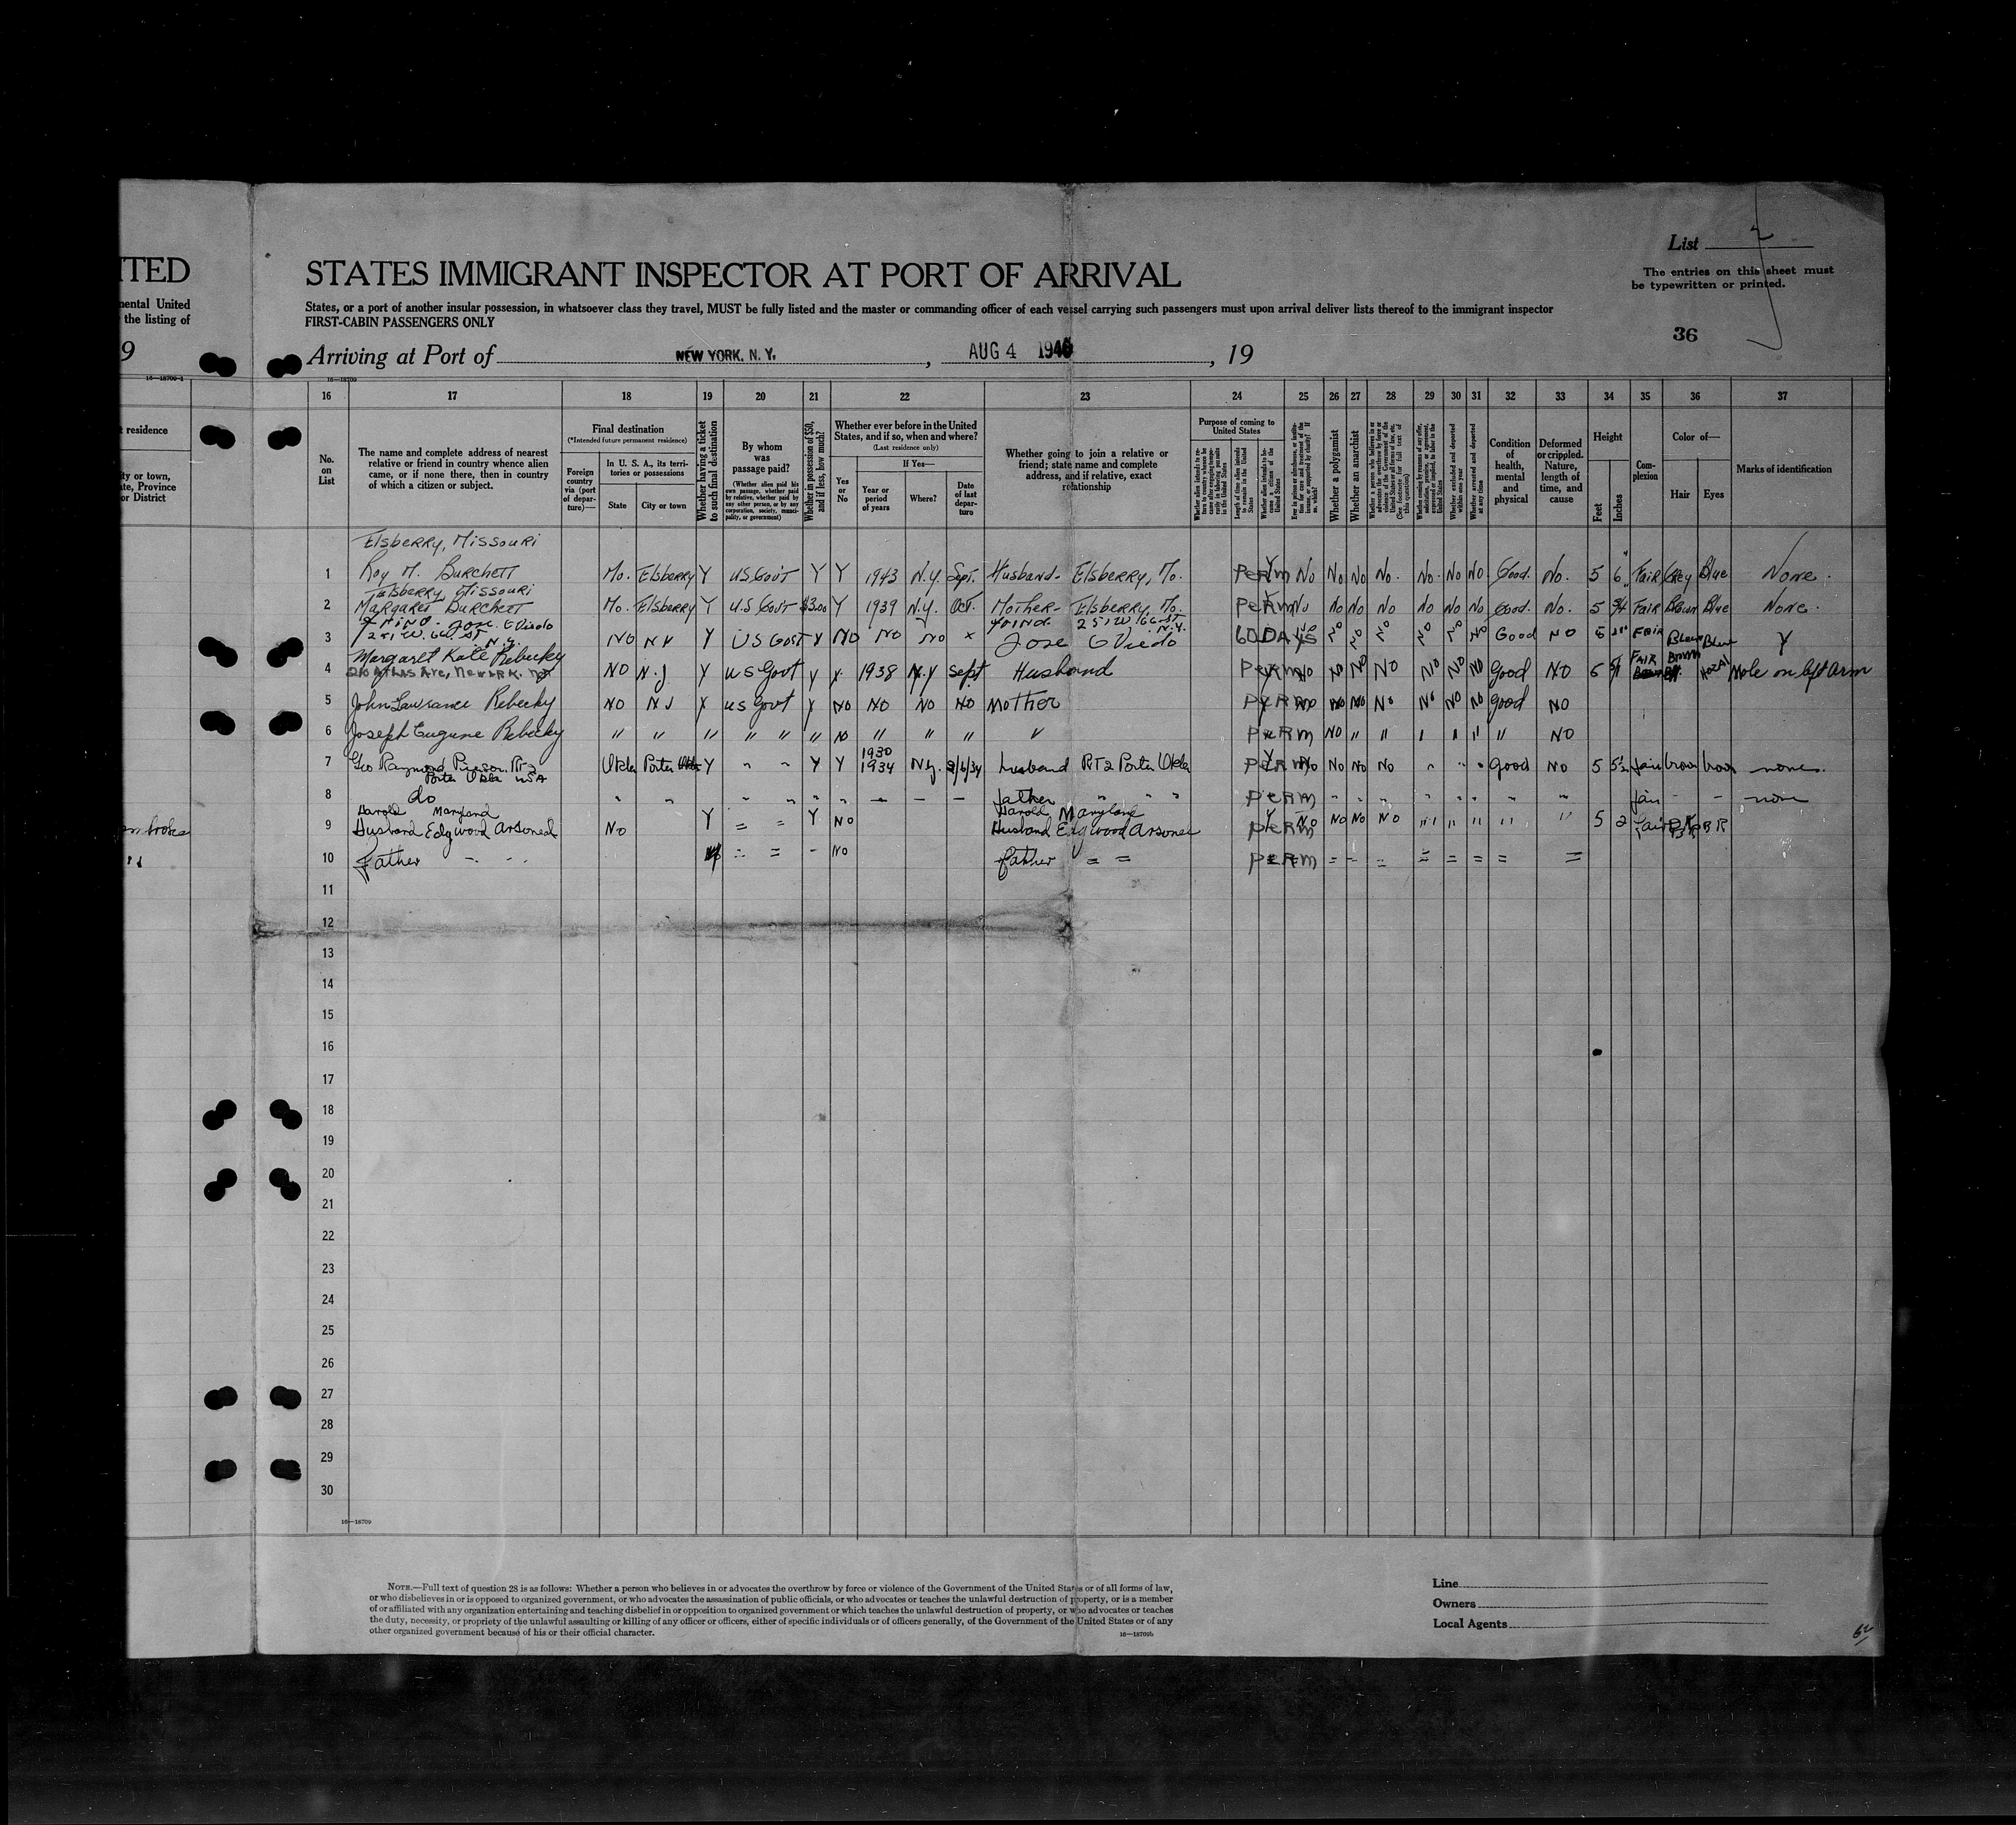 List 2
The entries on this sheet must
be typewritten or printed.
ITED
STATES IMMIGRANT INSPECTOR AT PORT OF ARRIVAL
nental United
the listing of
States, or a port of another insular possession, in whatsoever class they travel, MUST be fully listed and the master or commanding officer of each vessel carrying such passengers must upon arrival deliver lists thereof to the immigrant inspector
FIRST-CABIN PASSENGERS ONLY
36
9
Arriving at Port of NEW YORK, N. Y. , AUG 4 1946 , 19
16—18700-1
16—18709
16 17 18 19 20 21 22 23 24 25 26 27 28 29 30 31 32 33 34 35 36 37
t residence
ity or town,
ate, Province
or District
No.
on
List
The name and complete address of nearest
relative or friend in country whence alien
came, or if none there, then in country
of which a citizen or subject.
Final destination
(*Intended future permanent residence)
Foreign
country
via (port
of depar-
ture)—
In U. S. A., its terri-
tories or possessions
State
City or town
Whether having a ticket
to such final destination
By whom
was
passage paid?
(Whether alien paid his
own passage, whether paid
by relative, whether paid by
any other person, or by any
corporation, society, munici-
pality, or government)
Whether in possession of $50,
and if less, how much?
Whether ever before in the United
States, and if so, when and where?
(Last residence only)
Yes
or
No
If Yes—
Year or
period
of years
Where?
Date
of last
depar-
ture
Whether going to join a relative or
friend; state name and complete
address, and if relative, exact
relationship
Purpose of coming to
United States
Length of time alien intends
to remain in the United
States
Whether alien intends to be-
come a citizen of the
United States
Whether a polygamist
Whether an anarchist
(See footnote for full text of
this question)
Whether excluded and deported
within one year
Whether arrested and deported
at any time
Condition
of
health,
mental
and
physical
Deformed
or crippled.
Nature,
length of
time, and
cause
Height
Feet
Inches
Com-
plexion
Color of—
Hair
Eyes
Marks of identification
Elsberry, Missouri
1 Roy M. Burchett Mo. Elsberry Y US Gov't Y Y 1943 N.Y. Sept. Husband- Elsberry, Mo. Perm Y No No No No. No. No No Good. No. 5 6" Fair Grey Blue None.
Elsberry, Missouri
2 Margaret Burchett Mo. Elsberry Y U.S Gov't $3.00 Y 1939 N.Y. Oct. Mother- Elsberry, Mo. Perm No No No No No No No Good. No. 5 3/4 Fair Brown Blue None.
Friend. Jose Oviedo Friend 251 W 66 ST
3 251 W. 66 ST N.Y. NO NY Y US Govt Y NO NO NO x Jose Oviedo N.Y. 60 DAYS No No No No No No No Good NO 5 Fair Blue Y
Margaret Kate Rebecky
4 Ave, Newark. NJ NO N.J Y US Govt Y Y 1938 N.Y Sept Husband Perm No No No No No No No Good NO 5 Fair Brown Hazel Mole on left arm
5 John Lawrance Rebecky NO NJ Y US Govt Y NO NO NO NO Mother Perm No No No No No No No Good NO
6 Joseph Eugene Rebecky " " " " " " NO " " " " Perm NO " " " " " " NO
7 Geo Raymond Pierson Rt 2 Okla Porter Y " " Y Y 1930 1934 N.Y. 9/6/34 husband RT2 Porter Okla Perm Y No No No No " " " Good No 5 5½ fair brown brown none.
Porter Okla USA
8 do " " " " " " " — — — father " " " Perm " " " " " " " " fair - - none
Harold Maryland Harold Maryland
9 Husband Edgwood Arsonal No Y = = Y NO Husband Edgwood Arsonal Perm Y No No No No " " " " " 5 2 fair BR
10 Father - - - = = - NO father = = Perm = - = = = = = =
11
12
13
14
15
16
17
18
19
20
21
22
23
24
25
26
27
28
29
30
16—18709
NOTE.—Full text of question 28 is as follows: Whether a person who believes in or advocates the overthrow by force or violence of the Government of the United States or of all forms of law,
or who disbelieves in or is opposed to organized government, or who advocates the assassination of public officials, or who advocates or teaches the unlawful destruction of property, or is a member
of or affiliated with any organization entertaining and teaching disbelief in or opposition to organized government or which teaches the unlawful destruction of property, or who advocates or teaches
the duty, necessity, or propriety of the unlawful assaulting or killing of any officer or officers, either of specific individuals or of officers generally, of the Government of the United States or of any
other organized government because of his or their official character.
16—18709b
Line
Owners
Local Agents